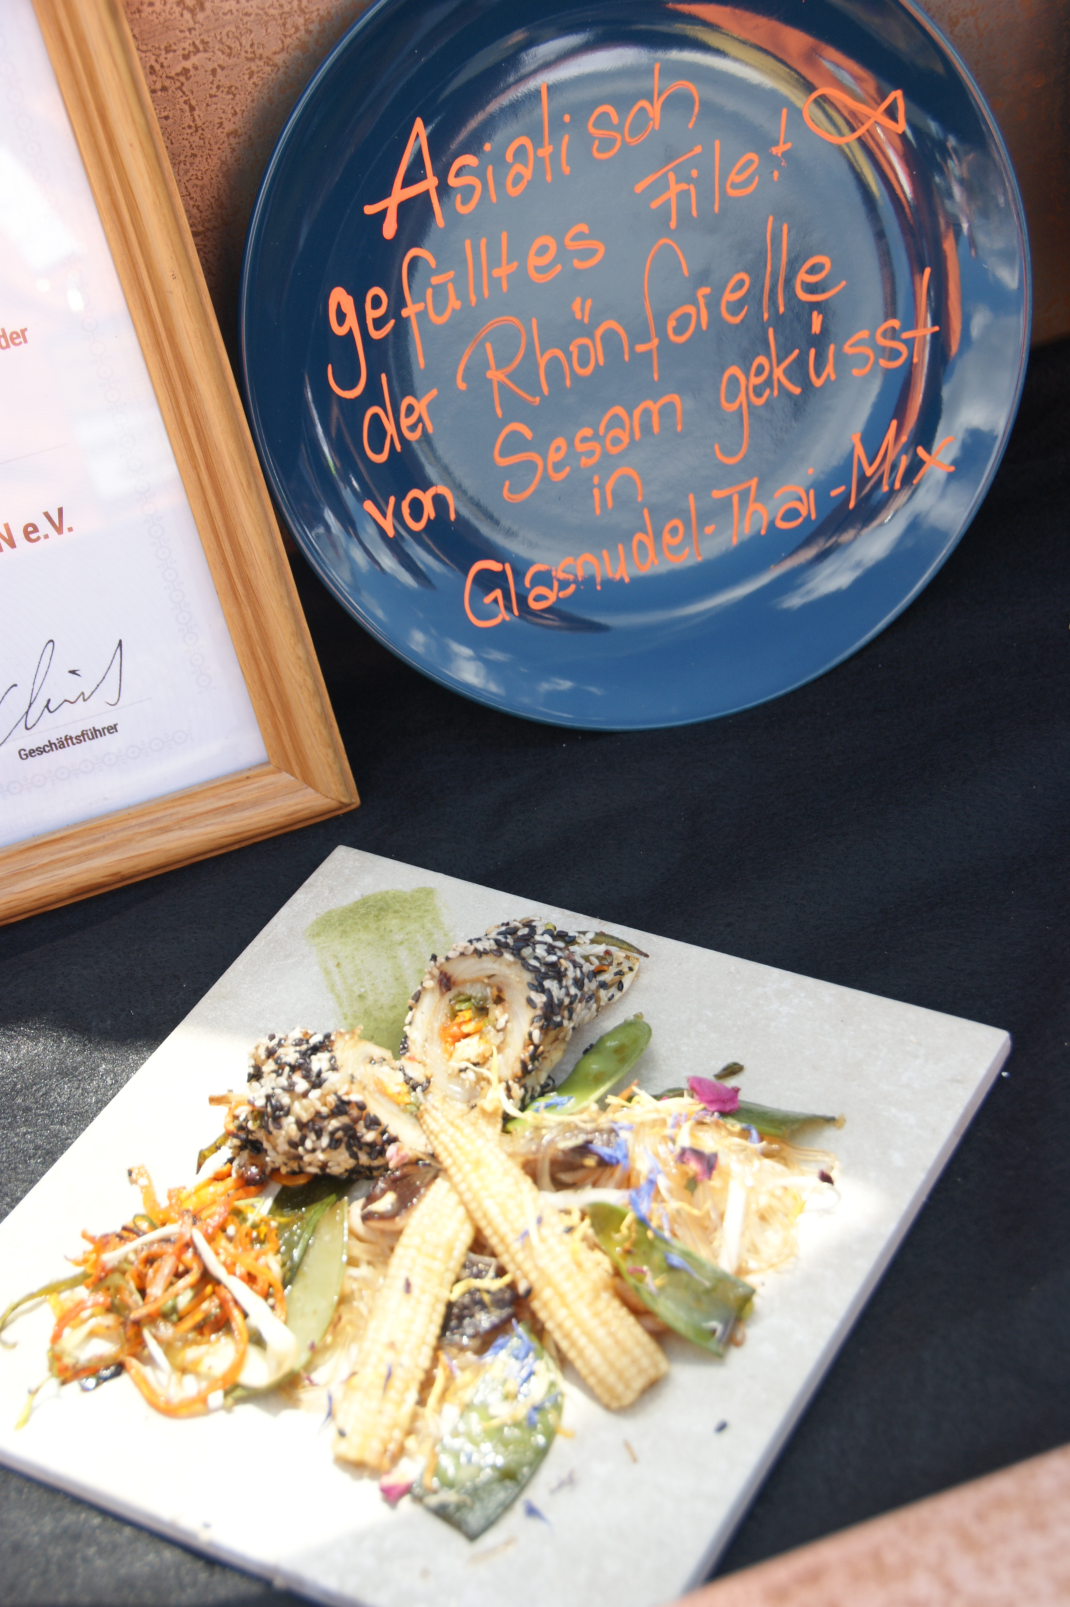 der
N e.V.
Geschäftsführer
Asiatisch
gefülltes Filet
der Rhönforelle
von Sesam geküsst
in
Glasnudel-Thai-Mix